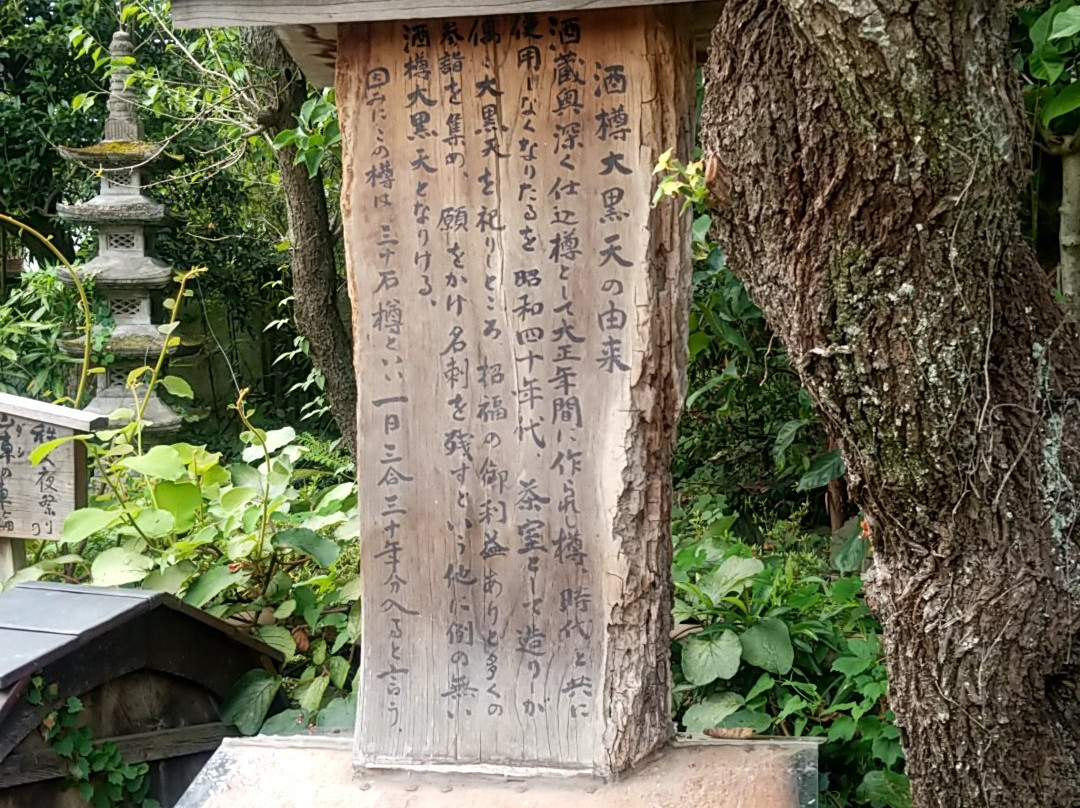 酒樽大黒天の由来
酒蔵奥深く仕込樽として大正年間に作られし樽、時代と共に
使用しなくなりたるを 昭和四十年代、茶室として造りしが
偶々大黒天を祀りしところ 招福の御利益ありと多くの
参詣を集め、願をかけ名刺を残すという他に例の無い
酒樽大黒天となりける。
因みにこの樽は 三十石樽といい 一日三合三十年分入ると言う。
夜祭り
山車の車輪